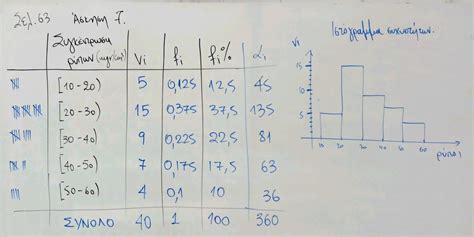 Σελ. 63 Άσκηση 7.
Συγκέντρωση ρύπων (μgr/m³) νi fi fi% αi
[10-20) 5 0,125 12,5 45
[20-30) 15 0,375 37,5 135
[30-40) 9 0,225 22,5 81
[40-50) 7 0,175 17,5 63
[50-60) 4 0,1 10 36
ΣΥΝΟΛΟ 40 1 100 360
Ιστόγραμμα συχνοτήτων.
νi
15
10
5
10 20 30 40 50 60
ρύποι